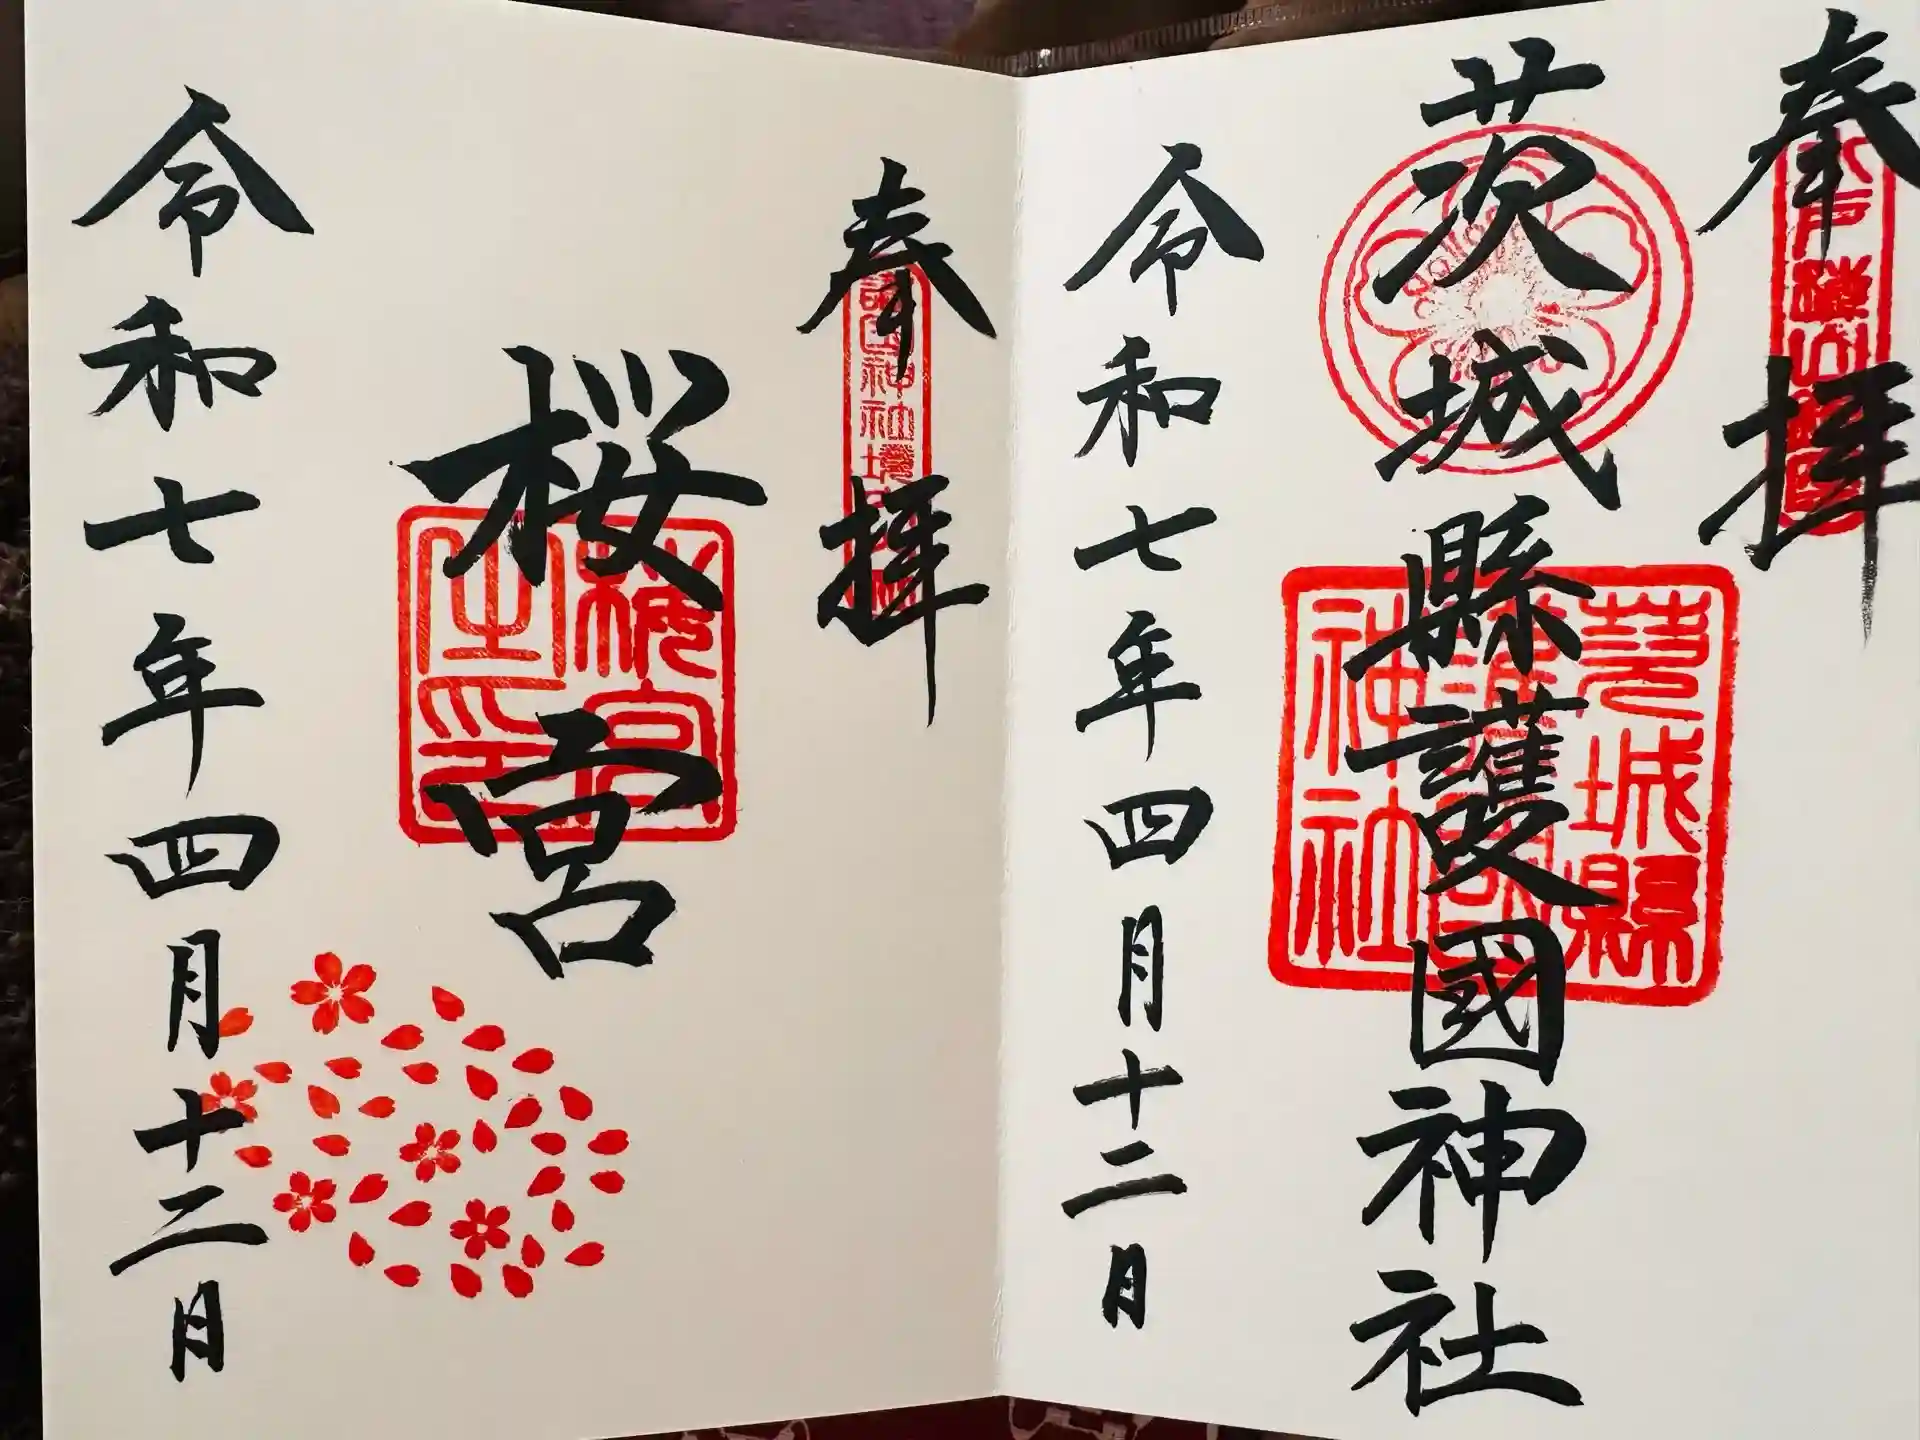 奉拝
水戸櫻山鎮座
茨城縣護國神社
茨城縣
護國
神社
令和七年四月十二日
奉拝
護國神社境内
桜宮
桜宮
之印
令和七年四月十二日